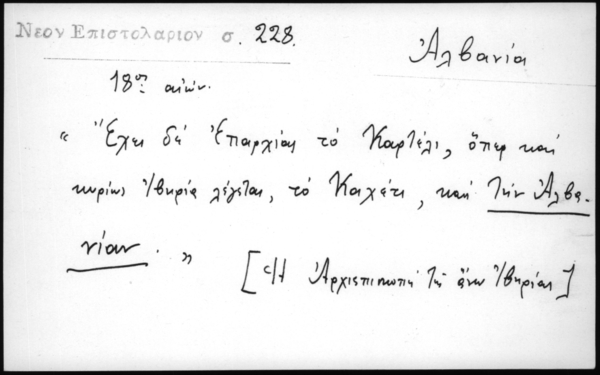 Νεον Επιστολαριον σ. 228.
Ἀλβανία
18ος αἰών.
"Ἔχει δὲ Ἐπαρχίας τὸ Καρτέλι, ὅπερ καὶ
κυρίως Ἰβηρία λέγεται, τὸ Καχέτι, καὶ τὴν Ἀλβα-
νίαν."
[Ἡ Ἀρχιεπισκοπὴ τῆς ἄνω Ἰβηρίας]